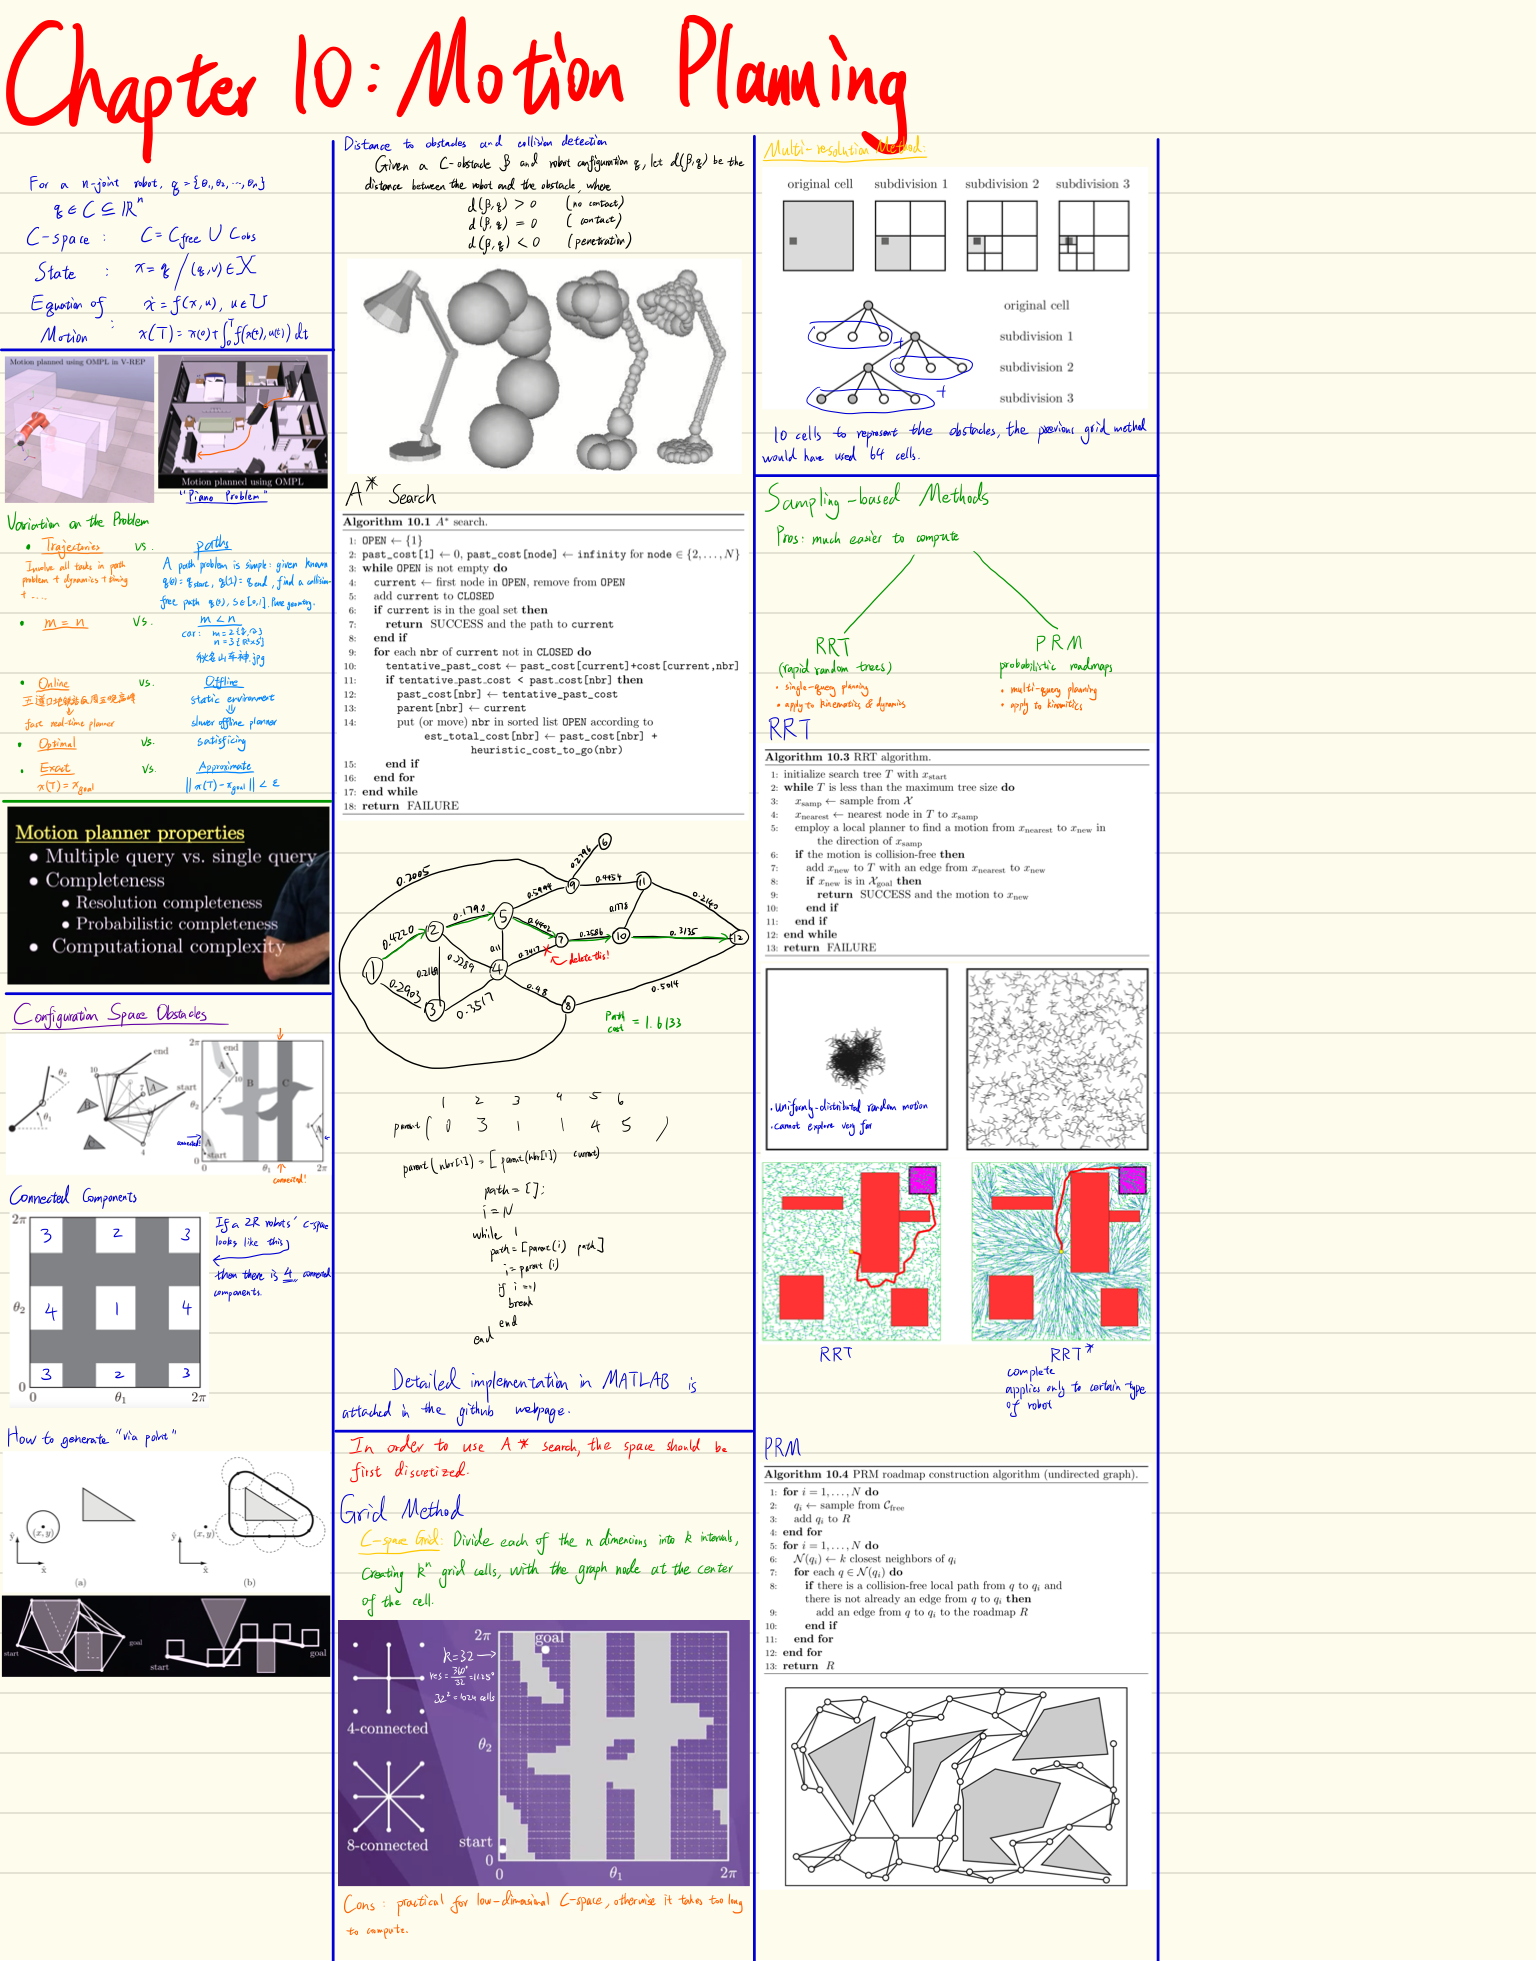 Chapter 10: Motion Planning
For a n-joint robot, q = {θ₁, θ₂, ..., θn}
q ∈ C ⊆ ℝⁿ
C-space : C = C free ∪ C obs
State : x = q / (q,v) ∈ X
Equation of Motion : ẋ = f(x,u), u ∈ U
x(T) = x(0) + ∫₀ᵀ f(x(t),u(t)) dt
Motion planned using OMPL in V-REP
Motion planned using OMPL
"Piano Problem"
Variation on the Problem
• Trajectories vs. paths
Involve all tasks in path
problem + dynamics + timing
+ ....
A path problem is simple: given known
q(0) = q start, q(1) = q end, find a collision-
free path q(s), s ∈ [0,1]. Pure geometry.
• m = n vs. m < n
car: m = 2
n = 3
秋名山车神.jpg
• Online vs. Offline
fast real-time planner
static environment
⇓
slower offline planner
• Optimal vs. satisficing
• Exact vs. Approximate
x(T) = x goal
|| x(T) - x goal || < ε
Motion planner properties
• Multiple query vs. single query
• Completeness
• Resolution completeness
• Probabilistic completeness
• Computational complexity
Configuration Space Obstacles
θ₂
θ₁
end
start
10
7
4
A
B
C
2π
θ₂
0
θ₁
2π
end
start
connected!
connected!
Connected Components
2π
3 2 3
θ₂
4 1 4
3 2 3
0
0 θ₁ 2π
If a 2R robots' c-space
looks like this,
then there is 4 connected
components.
How to generate "via point"
(x, y)
ŷ
x̂
(a)
(x, y)
ŷ
x̂
(b)
start
goal
start
goal
Distance to obstacles and collision detection
Given a C-obstacle β and robot configuration q, let d(β,q) be the
distance between the robot and the obstacle, where
d(β,q) > 0 (no contact)
d(β,q) = 0 (contact)
d(β,q) < 0 (penetration)
A* Search
Algorithm 10.1 A* search.
1: OPEN ← {1}
2: past_cost[1] ← 0, past_cost[node] ← infinity for node ∈ {2, ..., N}
3: while OPEN is not empty do
4: current ← first node in OPEN, remove from OPEN
5: add current to CLOSED
6: if current is in the goal set then
7: return SUCCESS and the path to current
8: end if
9: for each nbr of current not in CLOSED do
10: tentative_past_cost ← past_cost[current]+cost[current,nbr]
11: if tentative_past_cost < past_cost[nbr] then
12: past_cost[nbr] ← tentative_past_cost
13: parent[nbr] ← current
14: put (or move) nbr in sorted list OPEN according to
est_total_cost[nbr] ← past_cost[nbr] +
heuristic_cost_to_go(nbr)
15: end if
16: end for
17: end while
18: return FAILURE
0.7005
0.2796
6
9
0.4454
11
0.5994
0.1790
0.4402
0.1778
0.2140
0.4220
2
5
7
0.2586
10
0.3135
12
0.11
0.2417
delete this!
1
0.2169
0.3289
4
0.2903
3
0.3517
0.48
8
0.5014
Path cost = 1.6133
1 2 3 4 5 6
parent ( 0 3 1 1 4 5 )
parent(nbr[i]) = [parent(nbr[i]) current)
path = [];
i = N
while 1
path = [parent(i) path]
i = parent(i)
if i == 1
break
end
end
Detailed implementation in MATLAB is
attached in the github webpage.
In order to use A* search, the space should be
first discretized.
Grid Method
C-space Grid: Divide each of the n dimensions into k intervals,
creating kⁿ grid cells, with the graph node at the center
of the cell.
4-connected
8-connected
k=32 →
res = 360°/32 = 11.25°
32² = 1024 cells
2π
goal
θ₂
start
0
0 θ₁ 2π
Cons: practical for low-dimensional C-space, otherwise it takes too long
to compute.
Multi-resolution Method:
original cell subdivision 1 subdivision 2 subdivision 3
original cell
subdivision 1
+
subdivision 2
+
subdivision 3
10 cells to represent the obstacles, the previous grid method
would have used 64 cells.
Sampling-based Methods
Pros: much easier to compute
RRT
(rapid random trees)
• single-query planning
• apply to kinematics & dynamics
PRM
probabilistic roadmaps
• multi-query planning
• apply to kinematics
RRT
Algorithm 10.3 RRT algorithm.
1: initialize search tree T with x start
2: while T is less than the maximum tree size do
3: x samp ← sample from X
4: x nearest ← nearest node in T to x samp
5: employ a local planner to find a motion from x nearest to x new in
the direction of x samp
6: if the motion is collision-free then
7: add x new to T with an edge from x nearest to x new
8: if x new is in X goal then
9: return SUCCESS and the motion to x new
10: end if
11: end if
12: end while
13: return FAILURE
• Uniformly-distributed random motion
• cannot explore very far
RRT
RRT*
complete
applies only to certain type
of robot
PRM
Algorithm 10.4 PRM roadmap construction algorithm (undirected graph).
1: for i = 1, ..., N do
2: qᵢ ← sample from C free
3: add qᵢ to R
4: end for
5: for i = 1, ..., N do
6: N(qᵢ) ← k closest neighbors of qᵢ
7: for each q ∈ N(qᵢ) do
8: if there is a collision-free local path from q to qᵢ and
there is not already an edge from q to qᵢ then
9: add an edge from q to qᵢ to the roadmap R
10: end if
11: end for
12: end for
13: return R